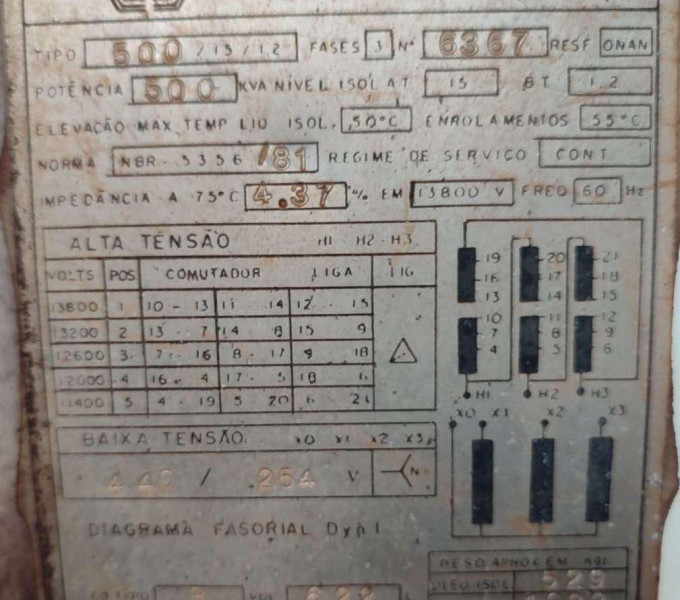 TIPO 500 / 15 / 1.2 FASES 3 Nº 6367 RESF ONAN
POTÊNCIA 500 KVA NÍVEL ISOL AT 15 BT 1.2
ELEVAÇÃO MÁX TEMP LIQ ISOL. 50°C ENROLAMENTOS 55°C
NORMA NBR - 5356 /81 REGIME DE SERVIÇO CONT
IMPEDÂNCIA A 75°C 4.37 % EM 13800 V FREQ 60 Hz
ALTA TENSÃO H1 - H2 - H3
VOLTS POS COMUTADOR LIGA LIG
13800 1 10 - 13 11 - 14 12 - 15
13200 2 13 - 7 14 - 8 15 - 9
12600 3 7 - 16 8 - 17 9 - 18
12000 4 16 - 4 17 - 5 18 - 6
11400 5 4 - 19 5 - 20 6 - 21
19 20 21
16 17 18
13 14 15
10 11 12
7 8 9
4 5 6
H1 H2 H3
BAIXA TENSÃO X0 X1 X2 X3
440 / 254 V N
X0 X1 X2 X3
DIAGRAMA FASORIAL Dyn1
PESO APROX EM
ISOL 529